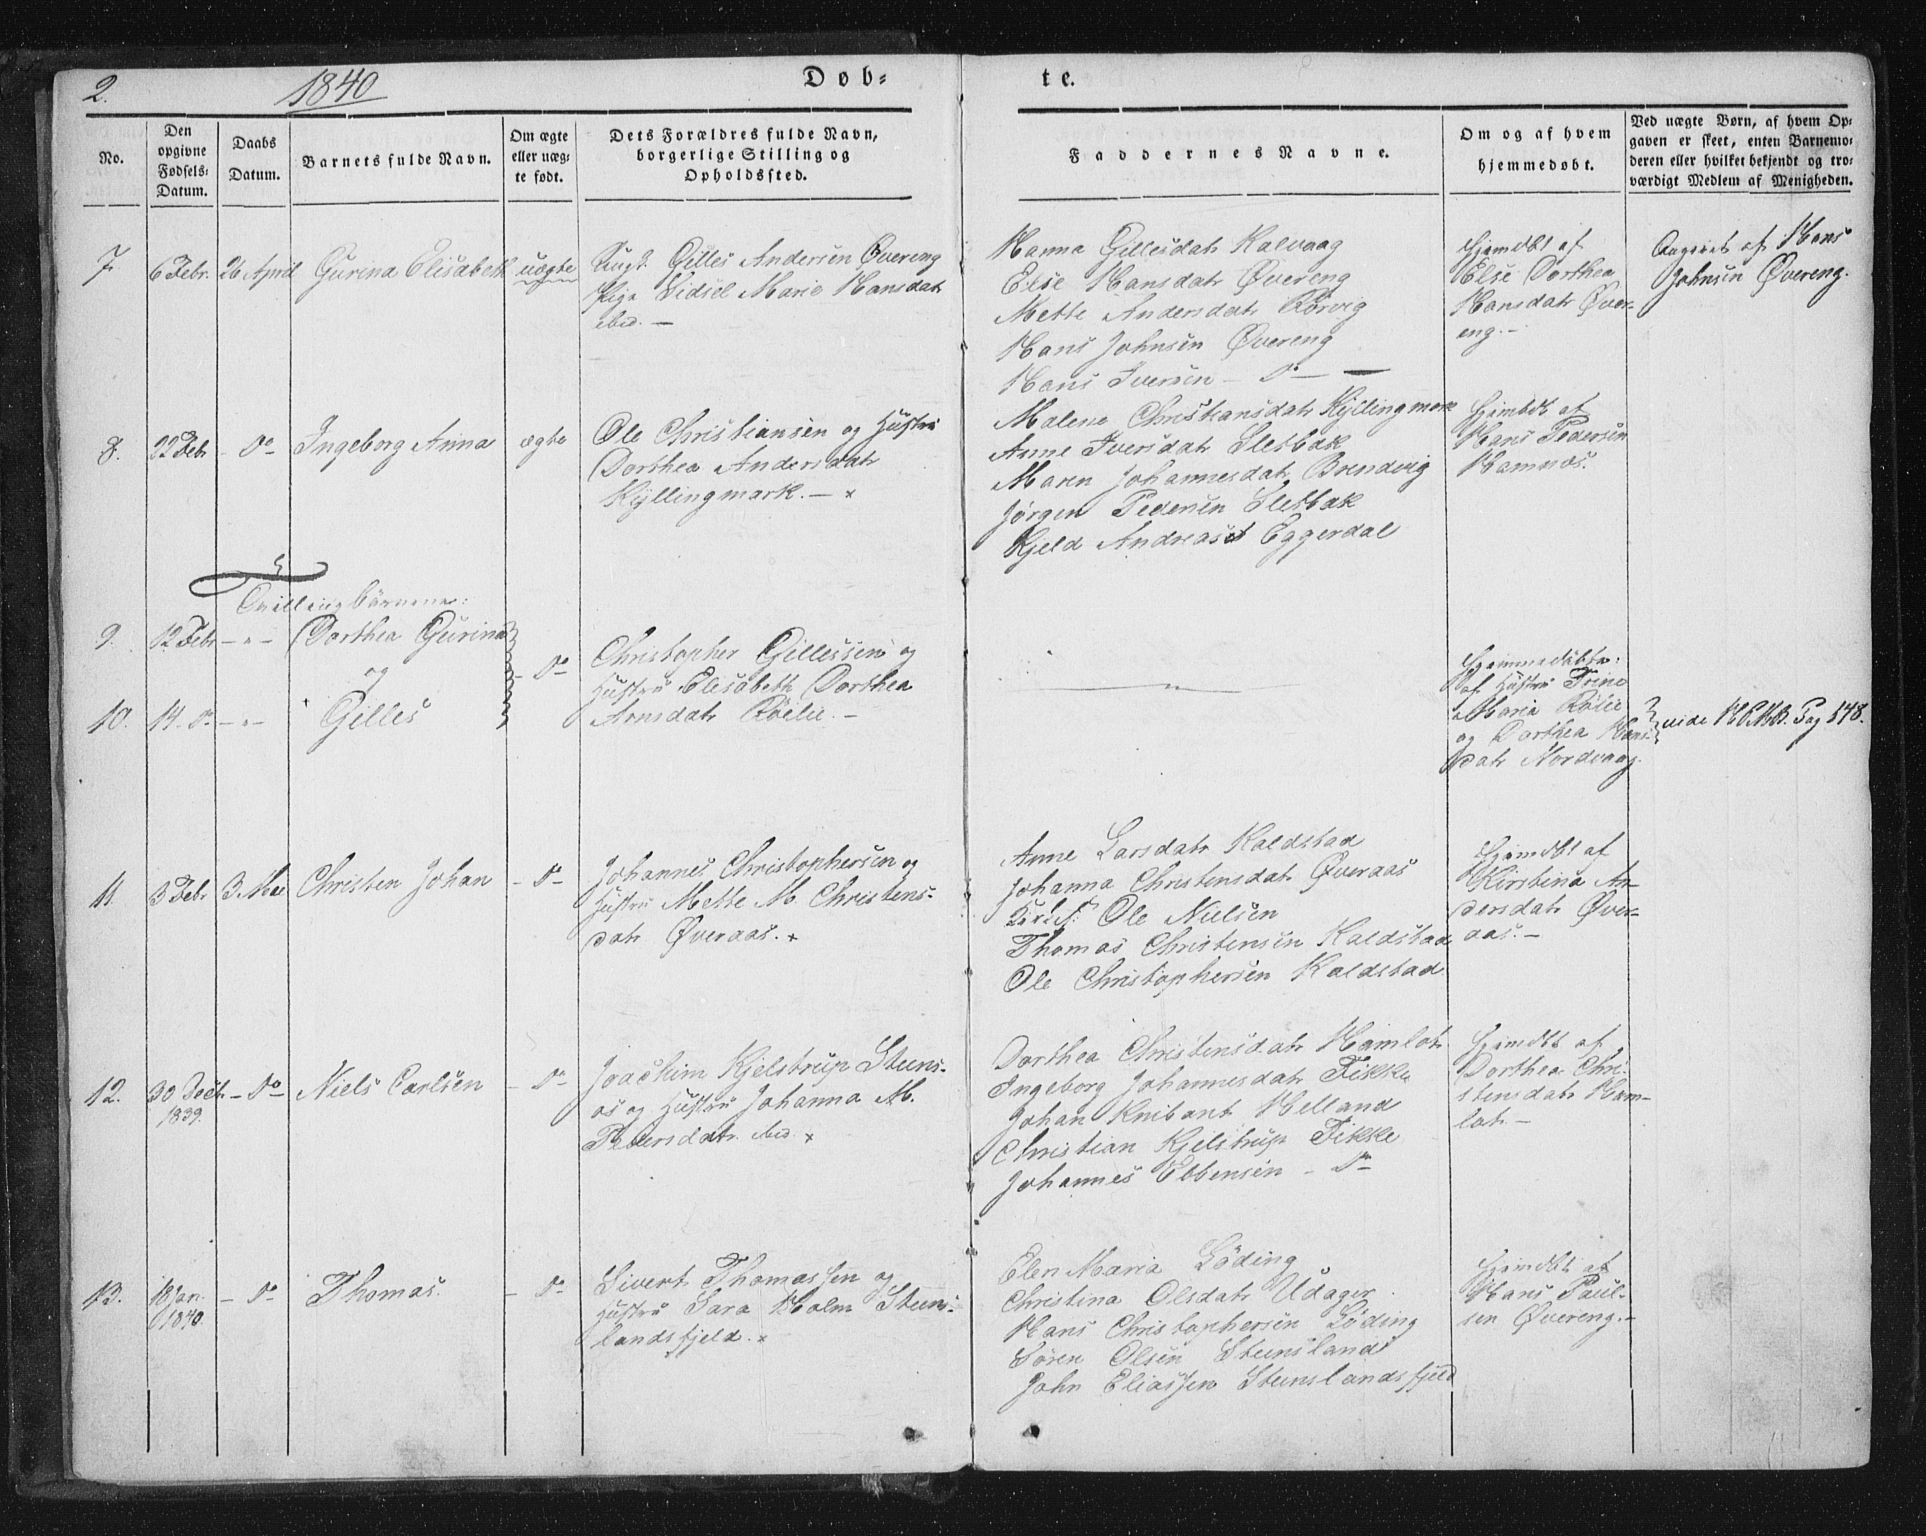 2.
1840
Døb-
te.
No.
Den
opgivne
Fødsels-
Datum.
Daabs
Datum.
Barnets fulde Navn.
Om ægte
eller uæg-
te født.
Dets Forældres fulde Navn,
borgerlige Stilling og
Opholdssted.
Faddernes Navne.
Om og af hvem
hjemmedøbt.
Ved uægte Børn, af hvem Op-
gaven er skeet, enten Barnemo-
deren eller hvilket bekjendt og tro-
værdigt Medlem af Menigheden.
7. 6 Febr. 26 April Gurina Elisabeth uægte
Ungk. Gilles Andersen Øvereng
Pige Sidsel Maria Hansdatr
ibid. —
Hanna Gillesdatr Kalvaag
Else Hansdatr Øvereng
Mette Andersdatr Rörvig
Hans Johnsen Øvereng
Hans Iversen — do —
Hjemdbt af
Else Dorthea
Hansdatr Øver-
eng. —
Angivet af Hans
Johnsen Øvereng.
8. 22 Feb — do — Ingeborg Anna ægte
Ole Christiansen og Hustru
Dorthea Andersdatr
Kyllingmark. — x
Malene Christiansdatr Kyllingmark
Anne Iversdatr Sletbak
Maren Johannesdatr Brendvig
Jørgen Pedersen Sletbak
Kjeld Andreas Eggerdal
Hjemdbt af
Hans Pedersen
Hamnos.
Tvillingbörnene:
9. 12 Febr — " — Dorthea Gurina
og
10. 14. do — " — Gilles
— do —
Christopher Gillessen og
Hustru Elisabeth Dorthea
Arnsdatr Röelie. —
— " —
Hjemmedöbte:
af Hustru Trine
Maria Rölie
og Dorthea Hans-
datr Nordvaag.
vide Pag 548.
11. 3 Febr 3 Mai Christen Johan — do —
Johannes Christophersen og
Hustru Mette M. Christens-
datr Øveraas. x
Anne Larsdatr Kaldstad
Johanna Christensdatr Øveraas
Ole Nielsen
Thomas Christensen Kaldstad
Ole Christophersen Kaldstad
Hjemdbt af
Kirstina An-
dersdatr Øver-
aas. —
12. 30 Decbr — do — Niels Carlsen — do —
1839.
Joachim Kjelstrup Steens-
os og Hustru Johanna M.
Pedersdatr ibid. x
Dorthea Christensdatr Hamlot
Ingeborg Johannesdatr Fikke
Johan Knibant Helland
Christian Kjelstrup Fikke
Johannes Ebbensen — do
Hjemdbt af
Dorthea Chri-
stensdatr Ham-
lot —
13. 18 Jan. — do — Thomas. — do —
1840.
Sivert Thomassen og
Hustru Sara Holm Steens-
landsfjeld. x
Elen Maria Löding
Christina Olsdatr Udager
Hans Christophersen Löding
Sören Olsen Steensland
John Eliassen Steenslandsfjeld
Hjemdbt af
Hans Paul-
sen Øvereng. —